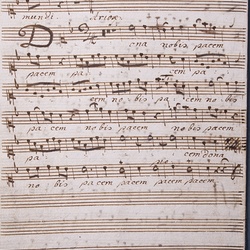 mundi
D ona nobis pacem
pacem pa cem pa
cem no bis pa cem no bis
pa cem no bis pacem pa
pa cem dona
no bis pacem pacem pacem pacem